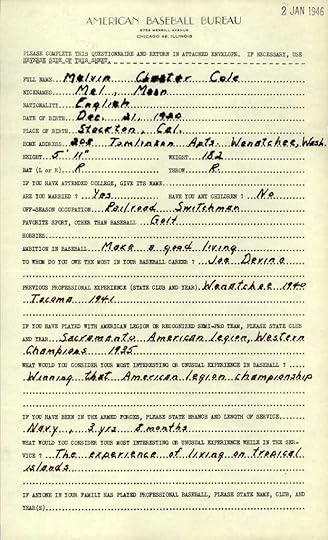 2 JAN 1946
AMERICAN BASEBALL BUREAU
CHICAGO 45, ILLINOIS
PLEASE COMPLETE THIS QUESTIONNAIRE AND RETURN IN ATTACHED ENVELOPE. IF NECESSARY, USE
REVERSE SIDE OF THIS SHEET.
FULL NAME Melvin Chester Cole
NICKNAMES Mel, Moon
NATIONALITY English
DATE OF BIRTH Dec. 21, 1920
PLACE OF BIRTH Stockton, Cal.
HOME ADDRESS Tomlinson Apts. Wenatchee, Wash.
HEIGHT 5' 11" WEIGHT 182
BAT (L or R) R THROW R
IF YOU HAVE ATTENDED COLLEGE, GIVE ITS NAME
ARE YOU MARRIED ? Yes HAVE YOU ANY CHILDREN ? No
OFF-SEASON OCCUPATION Railroad Switchman
FAVORITE SPORT, OTHER THAN BASEBALL Golf
HOBBIES
AMBITION IN BASEBALL Make a good living
TO WHOM DO YOU OWE THE MOST IN YOUR BASEBALL CAREER ? Joe Devine
PREVIOUS PROFESSIONAL EXPERIENCE (STATE CLUB AND YEAR) Wenatchee 1940
Tacoma 1941
IF YOU HAVE PLAYED WITH AMERICAN LEGION OR RECOGNIZED SEMI-PRO TEAM, PLEASE STATE CLUB
AND YEAR Sacramento American Legion, Western
Champions 1935
WHAT WOULD YOU CONSIDER YOUR MOST INTERESTING OR UNUSUAL EXPERIENCE IN BASEBALL ?
Winning that American legion championship
IF YOU HAVE BEEN IN THE ARMED FORCES, PLEASE STATE BRANCH AND LENGTH OF SERVICE
Navy, 3 yrs 8 months
WHAT WOULD YOU CONSIDER YOUR MOST INTERESTING OR UNUSUAL EXPERIENCE WHILE IN THE SER-
VICE ? The experience of living on tropical
islands
IF ANYONE IN YOUR FAMILY HAS PLAYED PROFESSIONAL BASEBALL, PLEASE STATE NAME, CLUB, AND
YEAR(S)